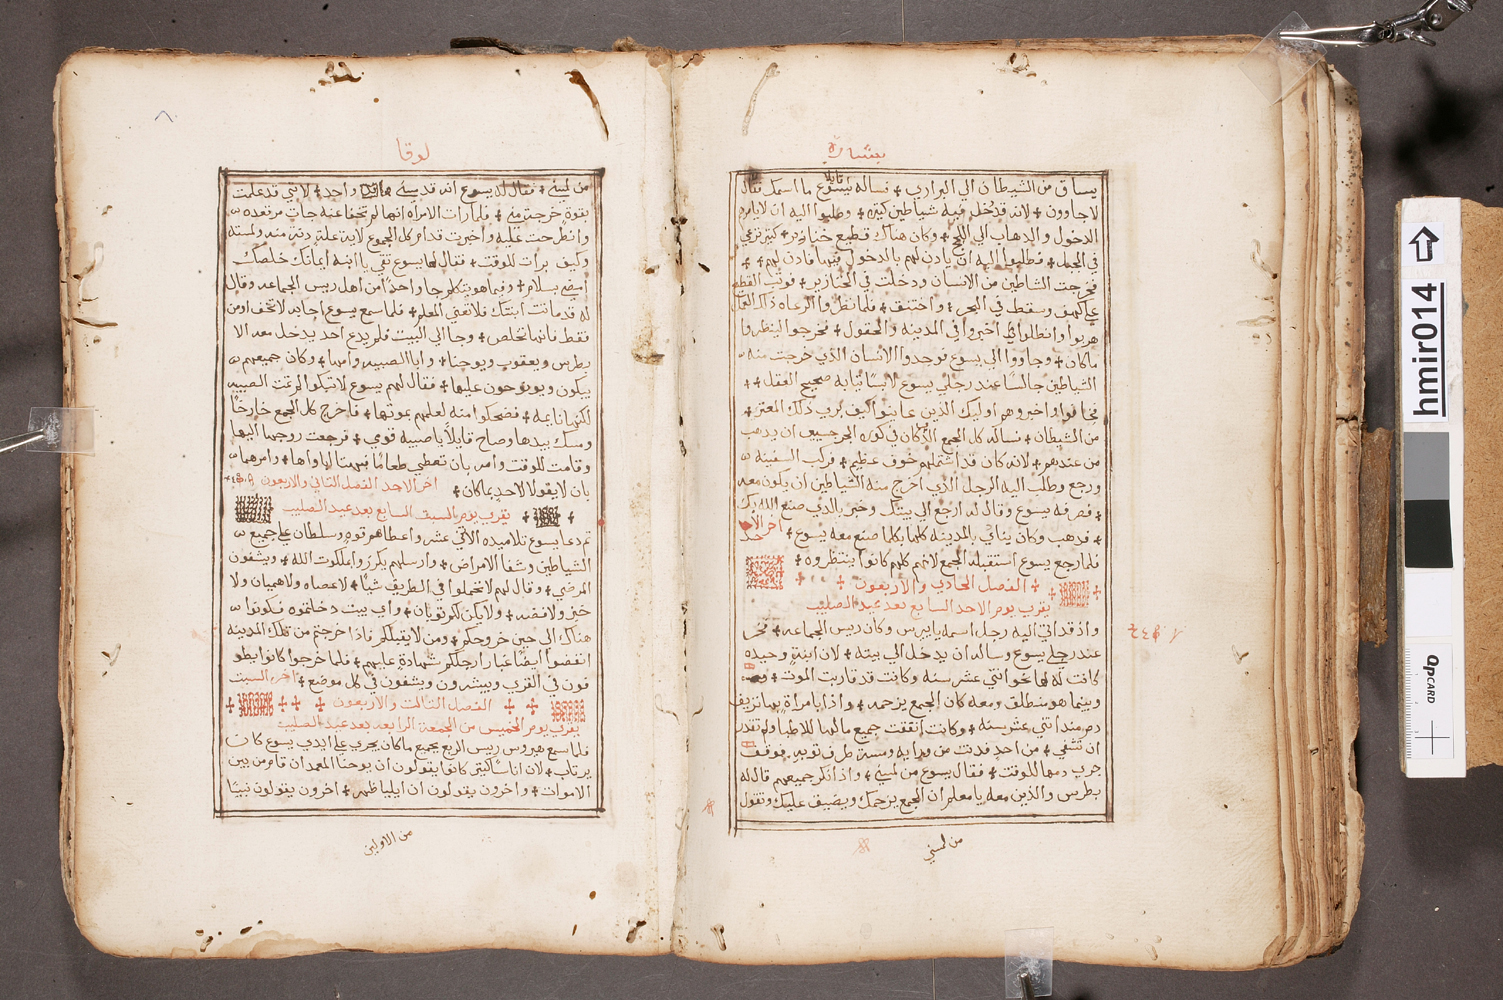 بشارة
يساق من الشيطان الي البراري + فساله يسوع قايلا ما اسمك فقال
لاجاوون + لانه قد دخل فيه شياطين كتيره + وطلبوا اليه ان لايامرهم
الدخول والدهاب الي اللجج + وكان هناك قطيع خنازير + كتير ترعي
في الجبل + فطلبوا اليه ان يادن لهم بالدخول فيها فادن لهم + +
فخرجت الشياطين من الانسان ودخلت في الخنازير + فوتب القطيع
علي كهف وسقط في البحر + واختنق + فلما نظروا الرعاه ذلك
هربوا وانطلوا اخبروا في المدينه والحقول + فخرجوا لينظروا
ماكان + وجاووا الي يسوع فوجدوا الانسان الذي خرجت منه
الشياطين جالسًا عند رجلي يسوع لابسًا تيابه صحيح العقل + +
فخافوا واخبروهم اوليك الذين عاينوا كيف بري ذلك المعتر +
من الشيطان + فساله كل الجمع الذي كان في كورة الجرجسيين ان يدهب
من عندهم + لانه كان قد اشتملهم خوف عظيم + فركب السفينه
ورجع وطلب اليه الرجل الذي اخرج منه الشياطين ان يكون معه
+ فصرفه يسوع وقال له ارجع الي بيتك وخبر بالذي صنع الله بك
+ فدهب وكان ينادي بالمدينه كلها بكلما صنع معه يسوع + اخر الاحد
فلما رجع يسوع استقبله الجمع لانهم كلهم كانوا ينتظروه +
+ الفصل الحادي والاربعون +
يقري يوم الاحد السابع بعد عيد الصليب
واذ قد اتي اليه رجل اسمه يايرس وكان ريس الجماعه + فخر
عند رجلي يسوع وساله ان يدخل الي بيته + لان ابنةٍ وحيده
كانت له لها نحو اتنتي عشر سنه وكانت قد قاربت الموت +
وبينما هو منطلق ومعه كان الجمع يزحمه + واذا بامراة بها نزيف
دم منذ اتني عشر سنه + وكانت انفقت جميع مالها للاطبا ولم تقدر
ان تشفي + من احدٍ فدنت من ورايه ومست طرف توبه فوقف
جري دمها للوقت + فقال يسوع من لمسني + واذ انكر جميعهم قال له
بطرس والذين معه يا معلم ان الجمع يزحمك ويضيق عليك وتقول
من لمسني
لوقا
من لمسني + فقال له يسوع انه قد مسني واحد + لانني قد علمت
بقوة خرجت مني + فلما رات الامراه انها لم تخفا عنه جات مرتعده
وانطرحت عليه واخبرت قدام كل الجموع لاية علةٍ دنت منه ولمسته
وكيف برات للوقت + فقال لها يسوع تقي يا ابنه ايمانك خلصك
امضي بسلام + وفيما هو يتكلم جا واحدًا من اهل ريس الجماعه وقال
له قد ماتت ابنتك فلا تعني المعلم + فلما سمع يسوع اجابه لا تخف امن
فقط فانها تخلص + وجا الي البيت فلم يدع احد يدخل معه الا
بطرس ويعقوب ويوحنا + وابا الصبيه وامها + وكان جميعهم
يبكون وينوحون عليها + فقال لهم يسوع لا تبكوا لم تمت الصبيه
لكنها نايمه + فضحكوا منه لعلمهم بموتها + فاخرج كل الجمع خارجًا
ومسك بيدها وصاح قايلاً يا صبيه قومي + فرجعت روحها اليها
وقامت للوقت وامر بان تعطي طعامًا فبهتا ابواها + وامرهما
بان لايقولا لاحدٍ بما كان + اخر الاحد الفصل التاني والاربعون
+ يقري يوم السبت السابع بعد عيد الصليب
تم دعا يسوع تلاميده الاتني عشر واعطاهم قوه وسلطان علي جميع
الشياطين وشفا الامراض + وارسلهم يكرزوا بملكوت الله + ويشفون
المرضي + وقال لهم لا تحملوا في الطريق شيًا + لا عصاه ولا هميان ولا
خبز ولا فضه + ولا يكن لكم توبان + واي بيت دخلتموه فكونوا
هناك الي حين خروجكم + ومن لا يقبلكم فاذا خرجتم من تلك المدينه
انفضوا ايضًا غبار ارجلكم شهادة عليهم + فلما خرجوا كانوا يطو
فون في القري ويبشرون ويشفون في كل موضع + اخر السبت
+ + الفصل التالت والاربعون + + +
يقري يوم الخميس من الجمعة الرابعه بعد عيد الصليب
فلما سمع هيرودس ريس الربع بجميع ماكان يجري علي ايدي يسوع كان
يرتاب + لان اناسًا كتير كانوا يقولون ان يوحنا المعمدان قام من بين
الاموات + واخرون يقولون ان ايليا ظهر + اخرون يقولون نبيًا
من الاولين
hmir014
QPCARD